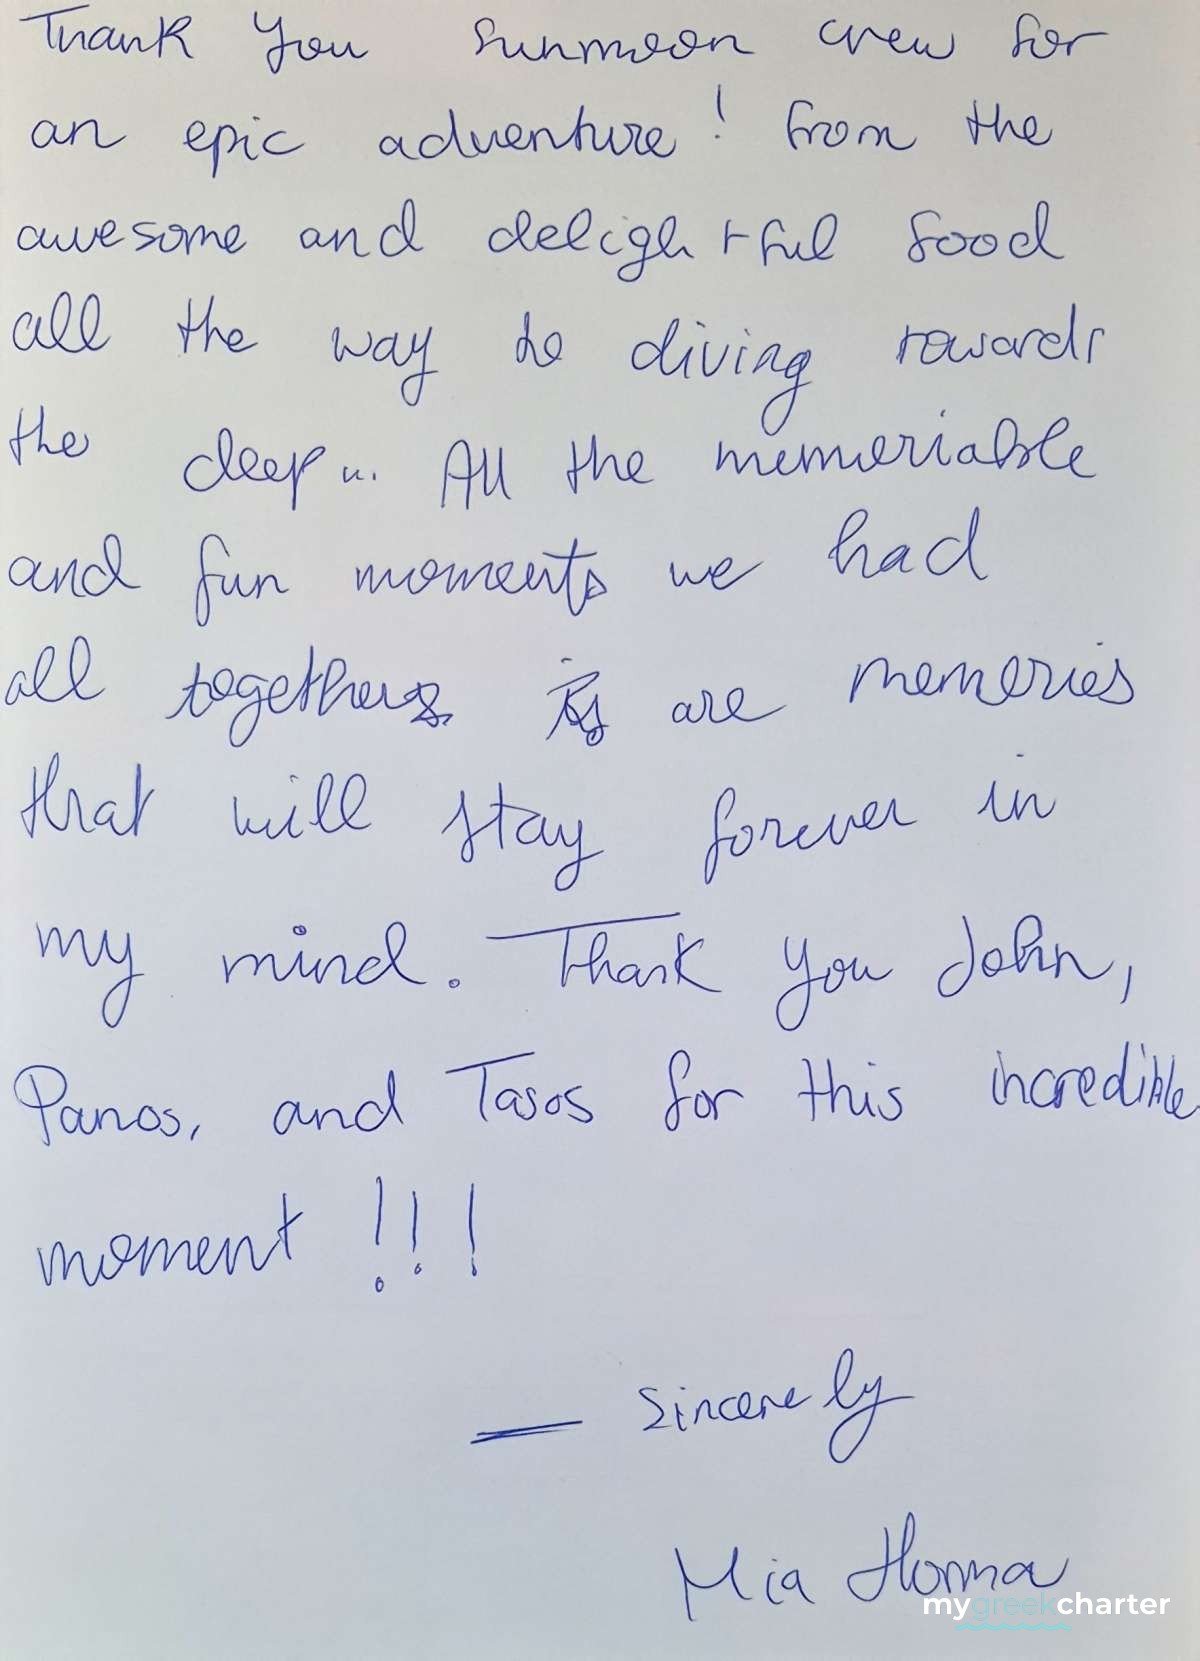 Thank You Sunmoon crew for
an epic adventure! from the
awesome and delightful food
all the way to diving towards
the deep... All the memoriable
and fun moments we had
all together are memories
that will stay forever in
my mind. Thank You John,
Panos, and Tasos for this incredible
moment!!!
— Sincerely
Mia Homma
mygreekcharter